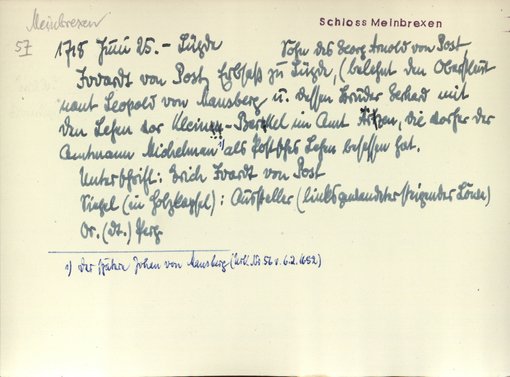 Meinbrexen
Schloss Meinbrexen
57
1718 Juni 25.- Lügde Sohn des Georg Arnold von Post
Ivardt von Post, Erbsaß zu Lügde, (belehnt den Oberstleut
nant Leopold von Mansberg u. dessen Bruder Gerhard mit
den Lehen vor Kleinen-Berkel im Amt Ärzen, die vorher der
Amtmann Michelman¹⁾ als Postsches Lehen besessen hat.
Unterschrift: Erich Ivardt von Post
Siegel (in Holzkapsel): Aussteller (linksgewendeter steigender Löwe)
Or. (dt.) Perg.
¹⁾ Der spätere Johan von Mansberg (Urk. Nr 56 v. 6.2.1682)